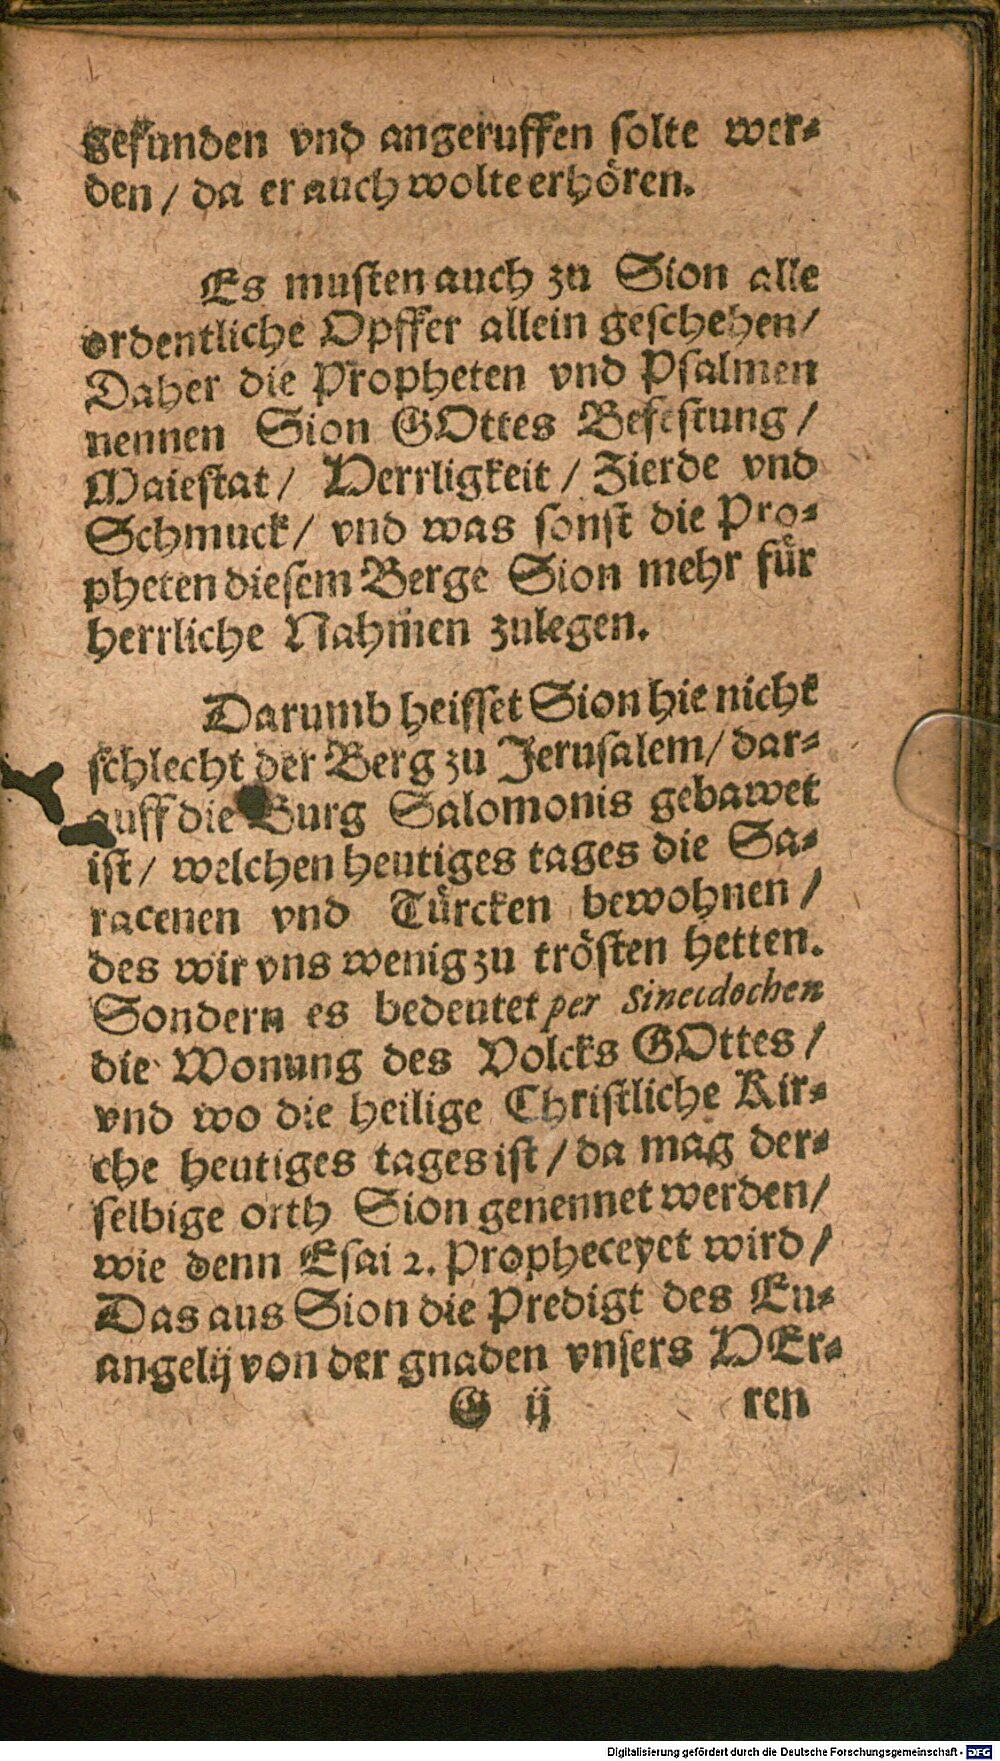 gefunden vnd angeruffen solte wer⸗
den / da er auch wolte erhören.
Es musten auch zu Sion alle
ordentliche Opffer allein geschehen/
Daher die Propheten vnd Psalmen
nennen Sion GOttes Befestung /
Maiestat / Herrligkeit / Zierde vnd
Schmuck / vnd was sonst die Pro⸗
pheten diesem Berge Sion mehr für
herrliche Nahmen zulegen.
Darumb heisset Sion hie nicht
schlecht der Berg zu Jerusalem / dar⸗
auff die Burg Salomonis gebawet
ist / welchen heutiges tages die Sa⸗
racenen vnd Türcken bewohnen /
des wir vns wenig zu trösten hetten.
Sondern es bedeutet per Sinecdochen
die Wonung des Volcks GOttes /
vnd wo die heilige Christliche Kir⸗
che heutiges tages ist / da mag der⸗
selbige orth Sion genennet werden/
wie denn Esai 2. Propheceyet wird /
Das aus Sion die Predigt des Eu⸗
angelij von der gnaden vnsers HEr⸗
G ij ren
Digitalisierung gefördert durch die Deutsche Forschungsgemeinschaft - DFG